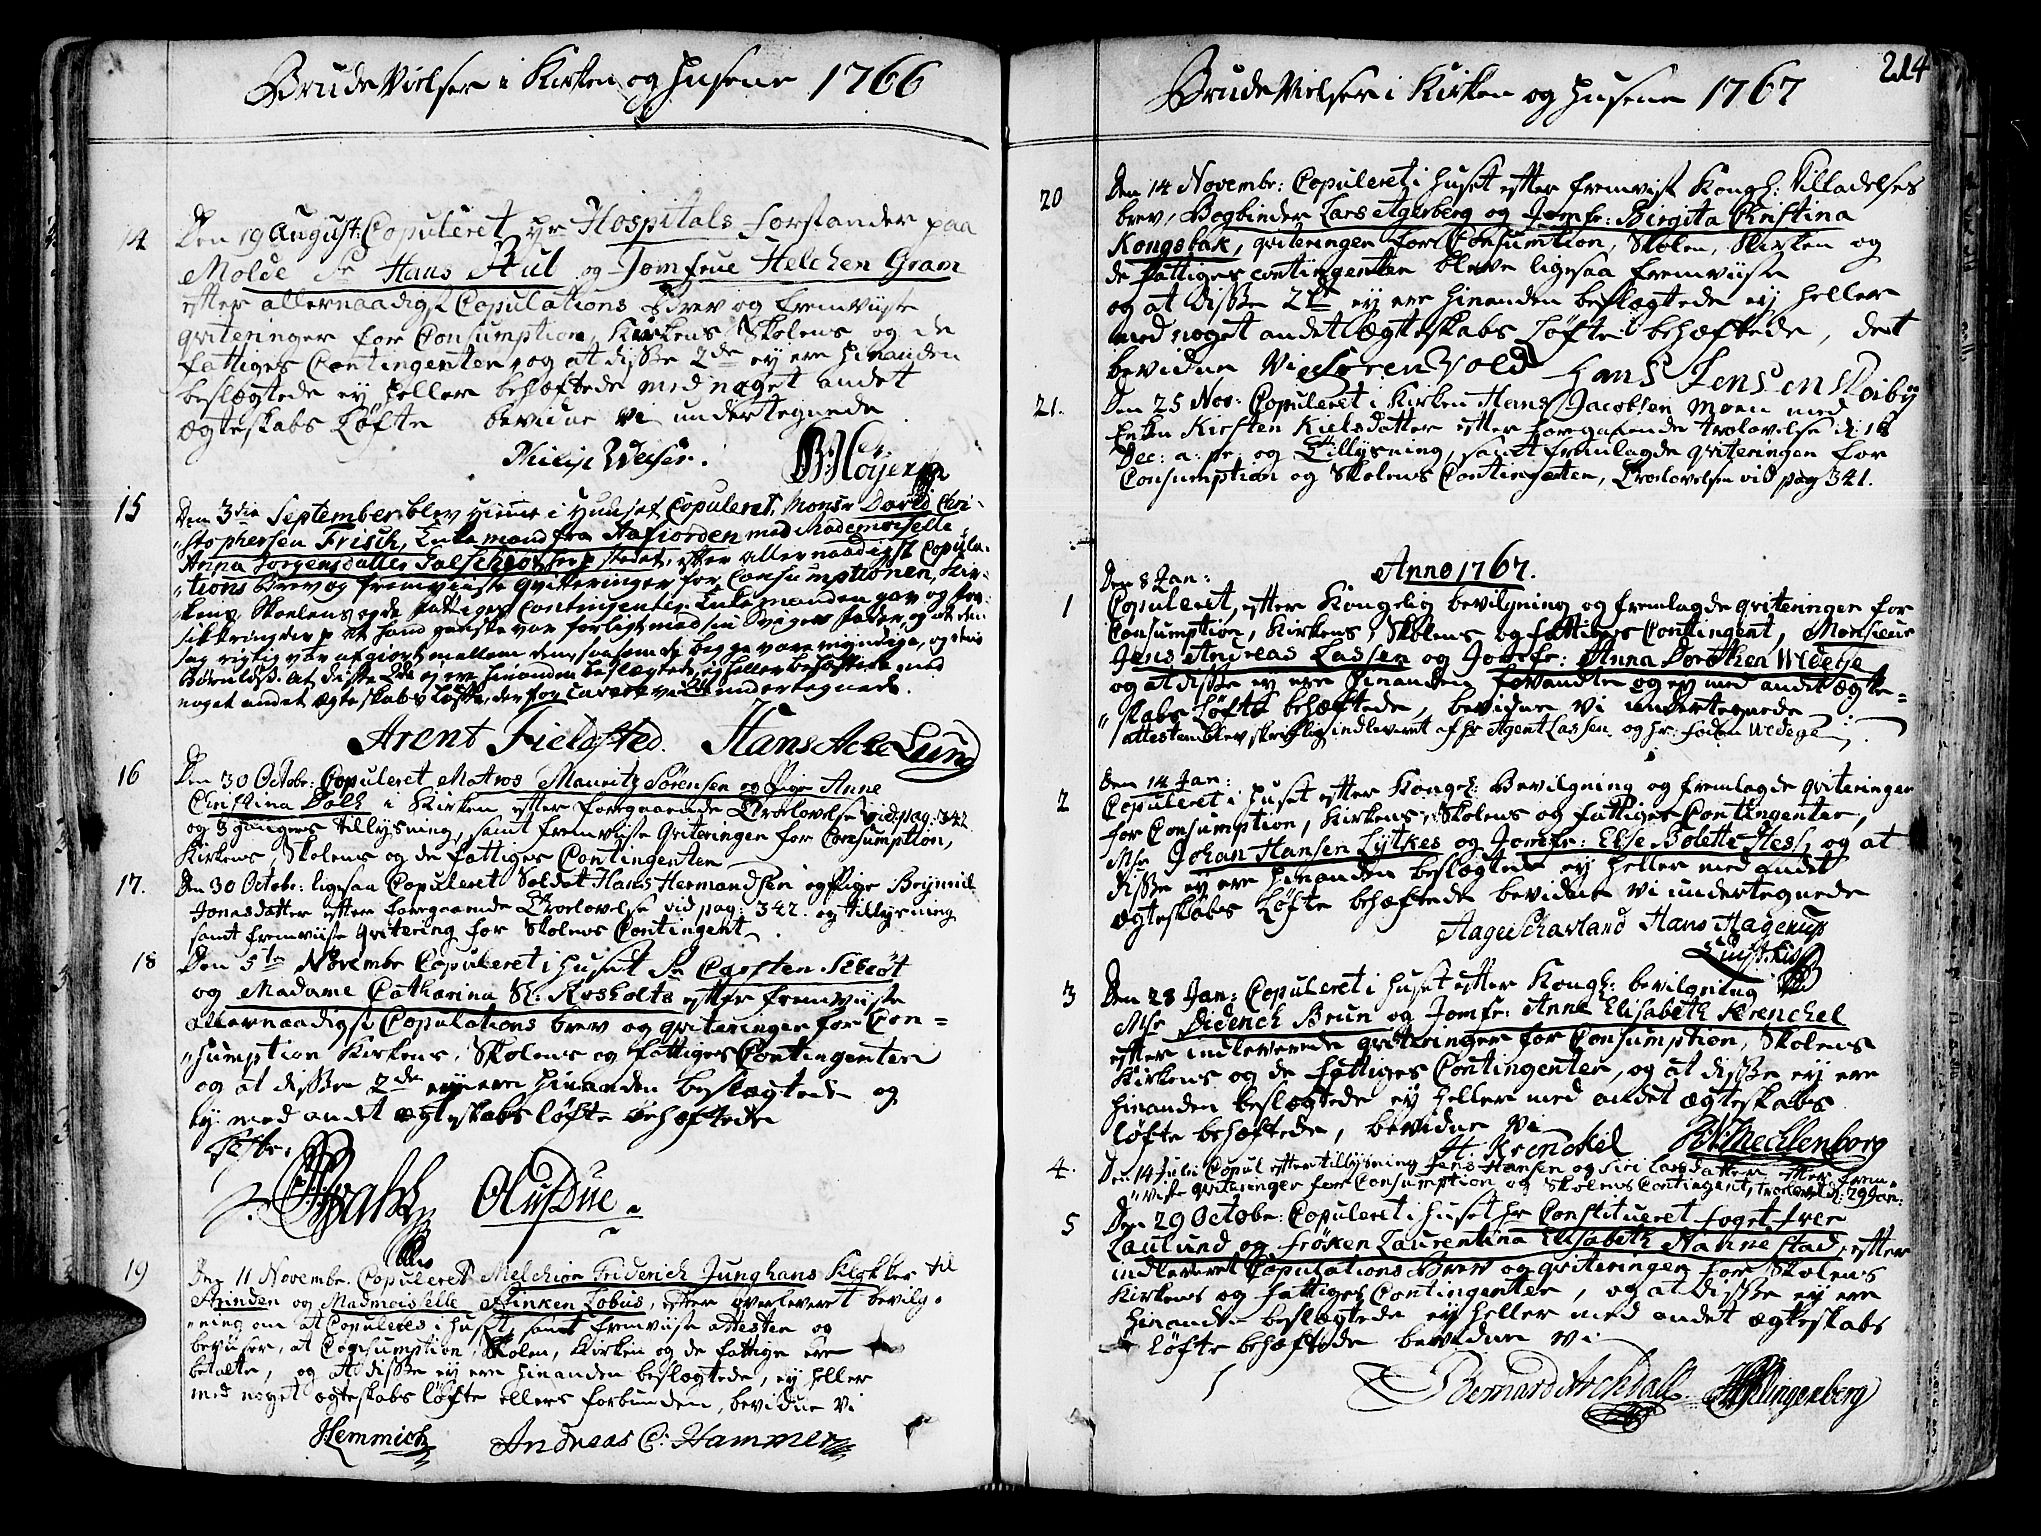 Brude Vielser i Kirken og Husene 1766
14 Den 19 August: Copuleret Hr Hospitals Forstander paa
Molde Sr Hans Hul og Jomfrue Helchen Gram
efter allernaadigst Copulations Brev og fremviiste
qviteringer for Consumption, Kirkens Skolens og de
fattiges Contingenter, og at disse 2de ey ere hinanden
beslægtede ey heller behæftede med noget andet
Ægteskabs Løfte bevidne vi undertegnede
Philip Weiser. B: Hoyer
15 Den 3die September blev hiemme i Huuset Copuleret, Monsr David Chri-
stophersen Frisch, Enkemand fra Aafiorden med Mademoiselle
Anna Jörgensdatter sammestedet, efter allernaadigst Copula-
tions Brev og fremviiste Qvitteringer for Consumptionen, Kir-
kens, Skoelens og de fattiges Contingenter. Enkemanden gav og for-
sikkring der paa at hand ganske var forligt med sin Sviger Fader, og at den
sag rigtig var afgiort mellem dem, saasom de begge vare myndige, og deris
at disse 2de ej ere hinanden beslegtede, ej heller behæftede med
noget andet Ægteskabs Løfte, derfor vi undertegnede.
Arent Fielsted. Hans Acke Lund
16 Den 30 Octobr: Copuleret Matros Mauritz Sörensen og Pige Anne
Christina Dolk i Kirken efter foregaaende Trolovelse vid pag: 342
og 3 ganges tillysning, samt fremviiste Qviteringer for Consumption,
Kirkens, Skolens og de fattiges Contingenter
17. Den 30 Octobr: ligesaa Copuleret Soldat Hans Hermandsen og Pige Brynnil
Jonasdatter efter foregaaende Trolovelse vid pag: 342. og tillysning
samt fremviiste qvitering for Skolens Contingent
18 Den 5te Novembr Copuleret i huset Sr Carsten Schröt
og Madame Catharina Sl: Rosholts efter fremviiste
allernaadigst Copulations brev og qviteringer for Con=
sumption Kirkens, Skolens og fattiges Contingenter
og at disse 2de ey ere hinanden beslægtede og
ey med andet ægteskabs løfte behæftede
Test.
Olufdue
19 Den 11 Novembr. Copuleret Melchior Friderich Junghans Klokker til
Strinden og Madmoiselle Anken Lobus, efter overleveret bevilg=
ning om at Copuleres i huset, samt fremviiste attester og
beviiser, at Consumption, Skolen, Kirken og de fattige ere
betalte, og at disse ey ere hinanden beslegtede, ey heller
med noget ægteskabs løfte ellers forbunden, bevidne vi
Hemmich Andreas C: Hammer
Brude Vielser i Kirken og Husene 1767 214
20 Den 14 Novembr: Copuleret i huset efter fremviist Kongl: Tilladelses
brev, Bogbinder Lars Agerberg og Jomfr: Birgita Christina
Kongsbak, qviteringen for Consumtion, Skolen, Kirken og
de fattiges contingenter bleve ligesaa fremviiste
og at disse 2de ey ere hinanden beslægtede ey heller
med noget andet Ægteskabs Løfte behæftede, det
bevidne Vi Sören Vold Hans Jensen Roiby
21. Den 25 Nov: Copuleret i Kirken Hans Jacobsen Moen med
Enken Kirsten Nielsdatter efter foregaaende trolovelse d: 16
Dec: a: pr: og Tillysning, samt fremlagde qviteringen for
Consumption og Skolens Contingenter, Trolovelsen vid pag 341.
Anno 1767.
Den 8 Jan:
1 Copuleret, efter Kongelig bevilgning og fremlagde qviteringer for
Consumption, Kirkens, Skolens og fattiges Contingent, Monsieur
Jens Andreas Lassen og Jomfr: Anna Dorothea Wedege
og at disse ey ere hinanden forvandte og ey med andet Ægte=
skabs Løfte behæftede, bevidne vi undertegnede
attesten blev skriftlig indleveret af hr Agent Lassen og hr: Foden Wedege
Den 14 Jan:
2 Copuleret i huset efter Kongl: Bevilgning og fremlagde qviteringer
for Consumption, Kirkens, Skolens og fattiges Contingenter,
Msr Johan Hansen Lytkes og Jomfr: Else Bolette Hess, og at
disse ey ere hinanden beslægtede ey heller med andet
ægteskabs Løfte behæftede bevidne vi undertegnede
Aage Schavland Hans Hagerup
3 Den 28 Jan: Copuleret i huset efter Kongl: bevilgning
Msr Diderich Brun og Jomfr: Anne Elisabeth Krenckel
efter indleverede qviteringer for Consumption, Skolens
Kirkens og de fattiges Contingenter, og at disse ey ere
hinanden beslægtede ey heller med andet ægteskabs
løfte behæftede, bevidne Vi
H. Krenckel Mechlenborg
4. Den 14 Juli Copul efter tillysning Jens Hansen og Siri Larsdatter efter frem-
viiste qviteringer for Consumption og Skolens Contingent, trolovet d: 29 Jan:
5 Den 29 Octobr: Copuleret i huset hr Constitueret foget Iver
Laulund og Frøken Laurentina Elisabeth Nannestad, efter
indleveret Copulations Brev og qviteringer for Skolens
Kirkens og fattiges Contingenter, og at disse ey ere
hinanden beslægtede ey heller med andet ægteskabs
løfte behæftede bevidne vi
Bernard Archdall Klingenberg